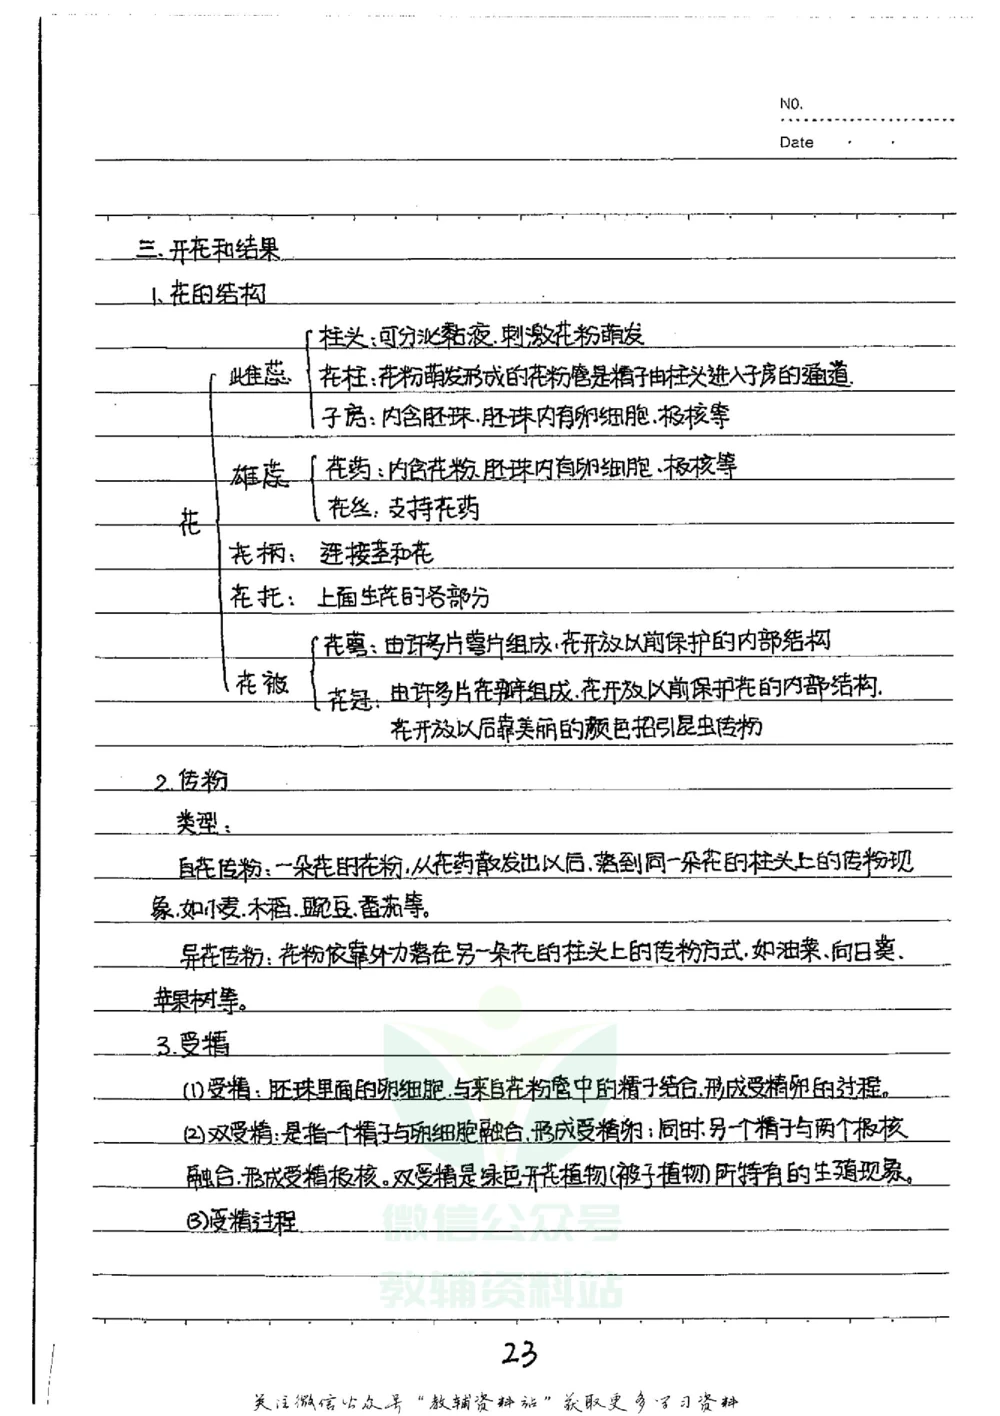 NO.
Date
三.开花和结果
1.花的结构
柱头:可分泌黏液.刺激花粉萌发
雌蕊
花柱:花粉萌发形成的花粉管是精子由柱头进入子房的通道.
子房:内含胚珠.胚珠内有卵细胞.极核等
雄蕊
花药:内含花粉.胚珠内有卵细胞.极核等
花丝:支持花药
花
花柄: 连接茎和花
花托: 上面生花的各部分
花萼:由许多片萼片组成.花开放以前保护的内部结构
花被
花冠:由许多片花瓣组成.花开放以前保护花的内部结构.
花开放以后靠美丽的颜色招引昆虫传粉
2.传粉
类型:
自花传粉:一朵花的花粉.从花药散发出以后.落到同一朵花的柱头上的传粉现
象.如小麦.水稻.豌豆.番茄等。
异花传粉:花粉依靠外力落在另一朵花的柱头上的传粉方式.如油菜.向日葵.
苹果树等。
3.受精
(1)受精:胚珠里面的卵细胞.与来自花粉管中的精子结合.形成受精卵的过程。
(2)双受精:是指一个精子与卵细胞融合.形成受精卵;同时.另一个精子与两个极核
融合.形成受精极核。双受精是绿色开花植物(被子植物)所特有的生殖现象。
(3)受精过程
微信公众号
教辅资料站
23
关注微信公众号“教辅资料站”获取更多学习资料